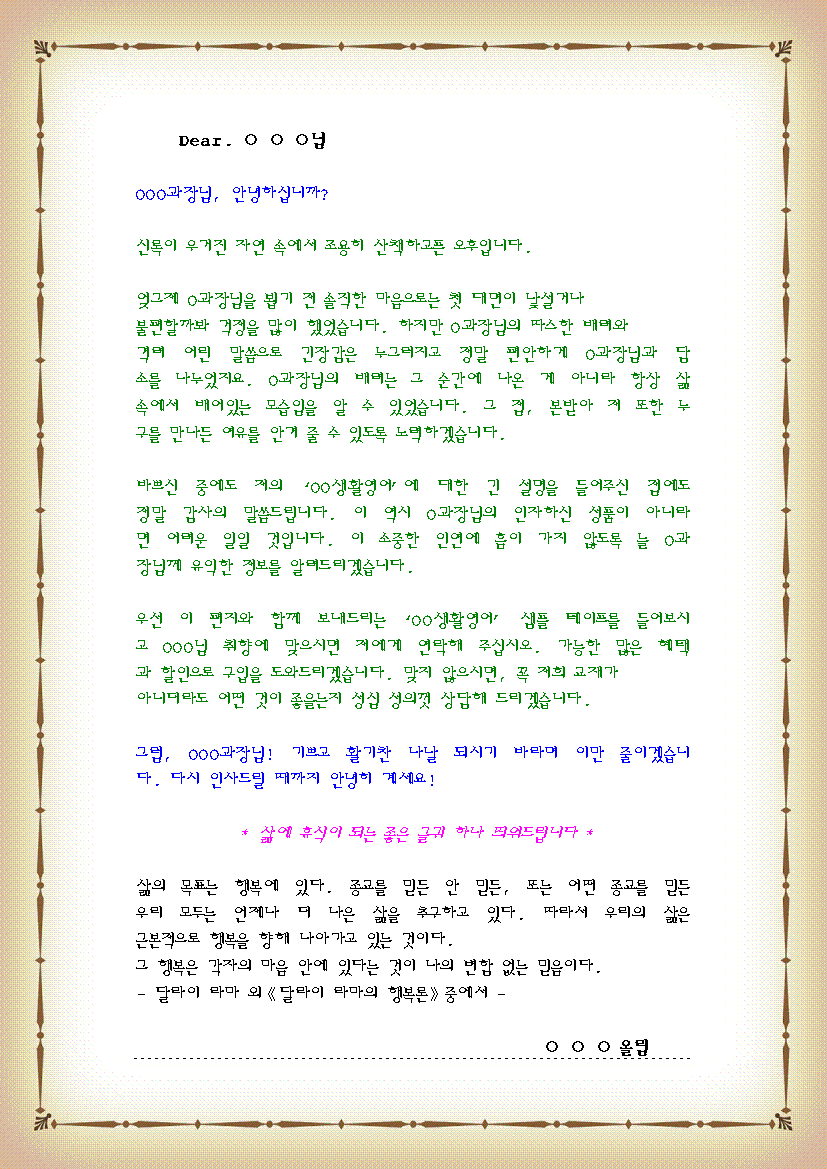 Dear. ○ ○ ○님
○○○과장님, 안녕하십니까?
신록이 우거진 자연 속에서 조용히 산책하고픈 오후입니다.
엊그제 ○과장님을 뵙기 전 솔직한 마음으로는 첫 대면이 낯설거나
불편할까봐 걱정을 많이 했었습니다. 하지만 ○과장님의 따스한 배려와
격려 어린 말씀으로 긴장감은 누그러지고 정말 편안하게 ○과장님과 담
소를 나누었지요. ○과장님의 배려는 그 순간에 나온 게 아니라 항상 삶
속에서 배어있는 모습임을 알 수 있었습니다. 그 점, 본받아 저 또한 누
구를 만나든 여유를 안겨 줄 수 있도록 노력하겠습니다.
바쁘신 중에도 저의 ‘○○생활영어’에 대한 긴 설명을 들어주신 점에도
정말 감사의 말씀드립니다. 이 역시 ○과장님의 인자하신 성품이 아니라
면 어려운 일일 것입니다. 이 소중한 인연에 흠이 가지 않도록 늘 ○과
장님께 유익한 정보를 알려드리겠습니다.
우선 이 편지와 함께 보내드리는 ‘○○생활영어’ 샘플 테이프를 들어보시
고 ○○○님 취향에 맞으시면 저에게 연락해 주십시오. 가능한 많은 혜택
과 할인으로 구입을 도와드리겠습니다. 맞지 않으시면, 꼭 저희 교재가
아니더라도 어떤 것이 좋을는지 성심 성의껏 상담해 드리겠습니다.
그럼, ○○○과장님! 기쁘고 활기찬 나날 되시기 바라며 이만 줄이겠습니
다. 다시 인사드릴 때까지 안녕히 계세요!
* 삶에 휴식이 되는 좋은 글귀 하나 띄워드립니다 *
삶의 목표는 행복에 있다. 종교를 믿든 안 믿든, 또는 어떤 종교를 믿든
우리 모두는 언제나 더 나은 삶을 추구하고 있다. 따라서 우리의 삶은
근본적으로 행복을 향해 나아가고 있는 것이다.
그 행복은 각자의 마음 안에 있다는 것이 나의 변함 없는 믿음이다.
- 달라이 라마 외《달라이 라마의 행복론》중에서 -
○ ○ ○ 올림